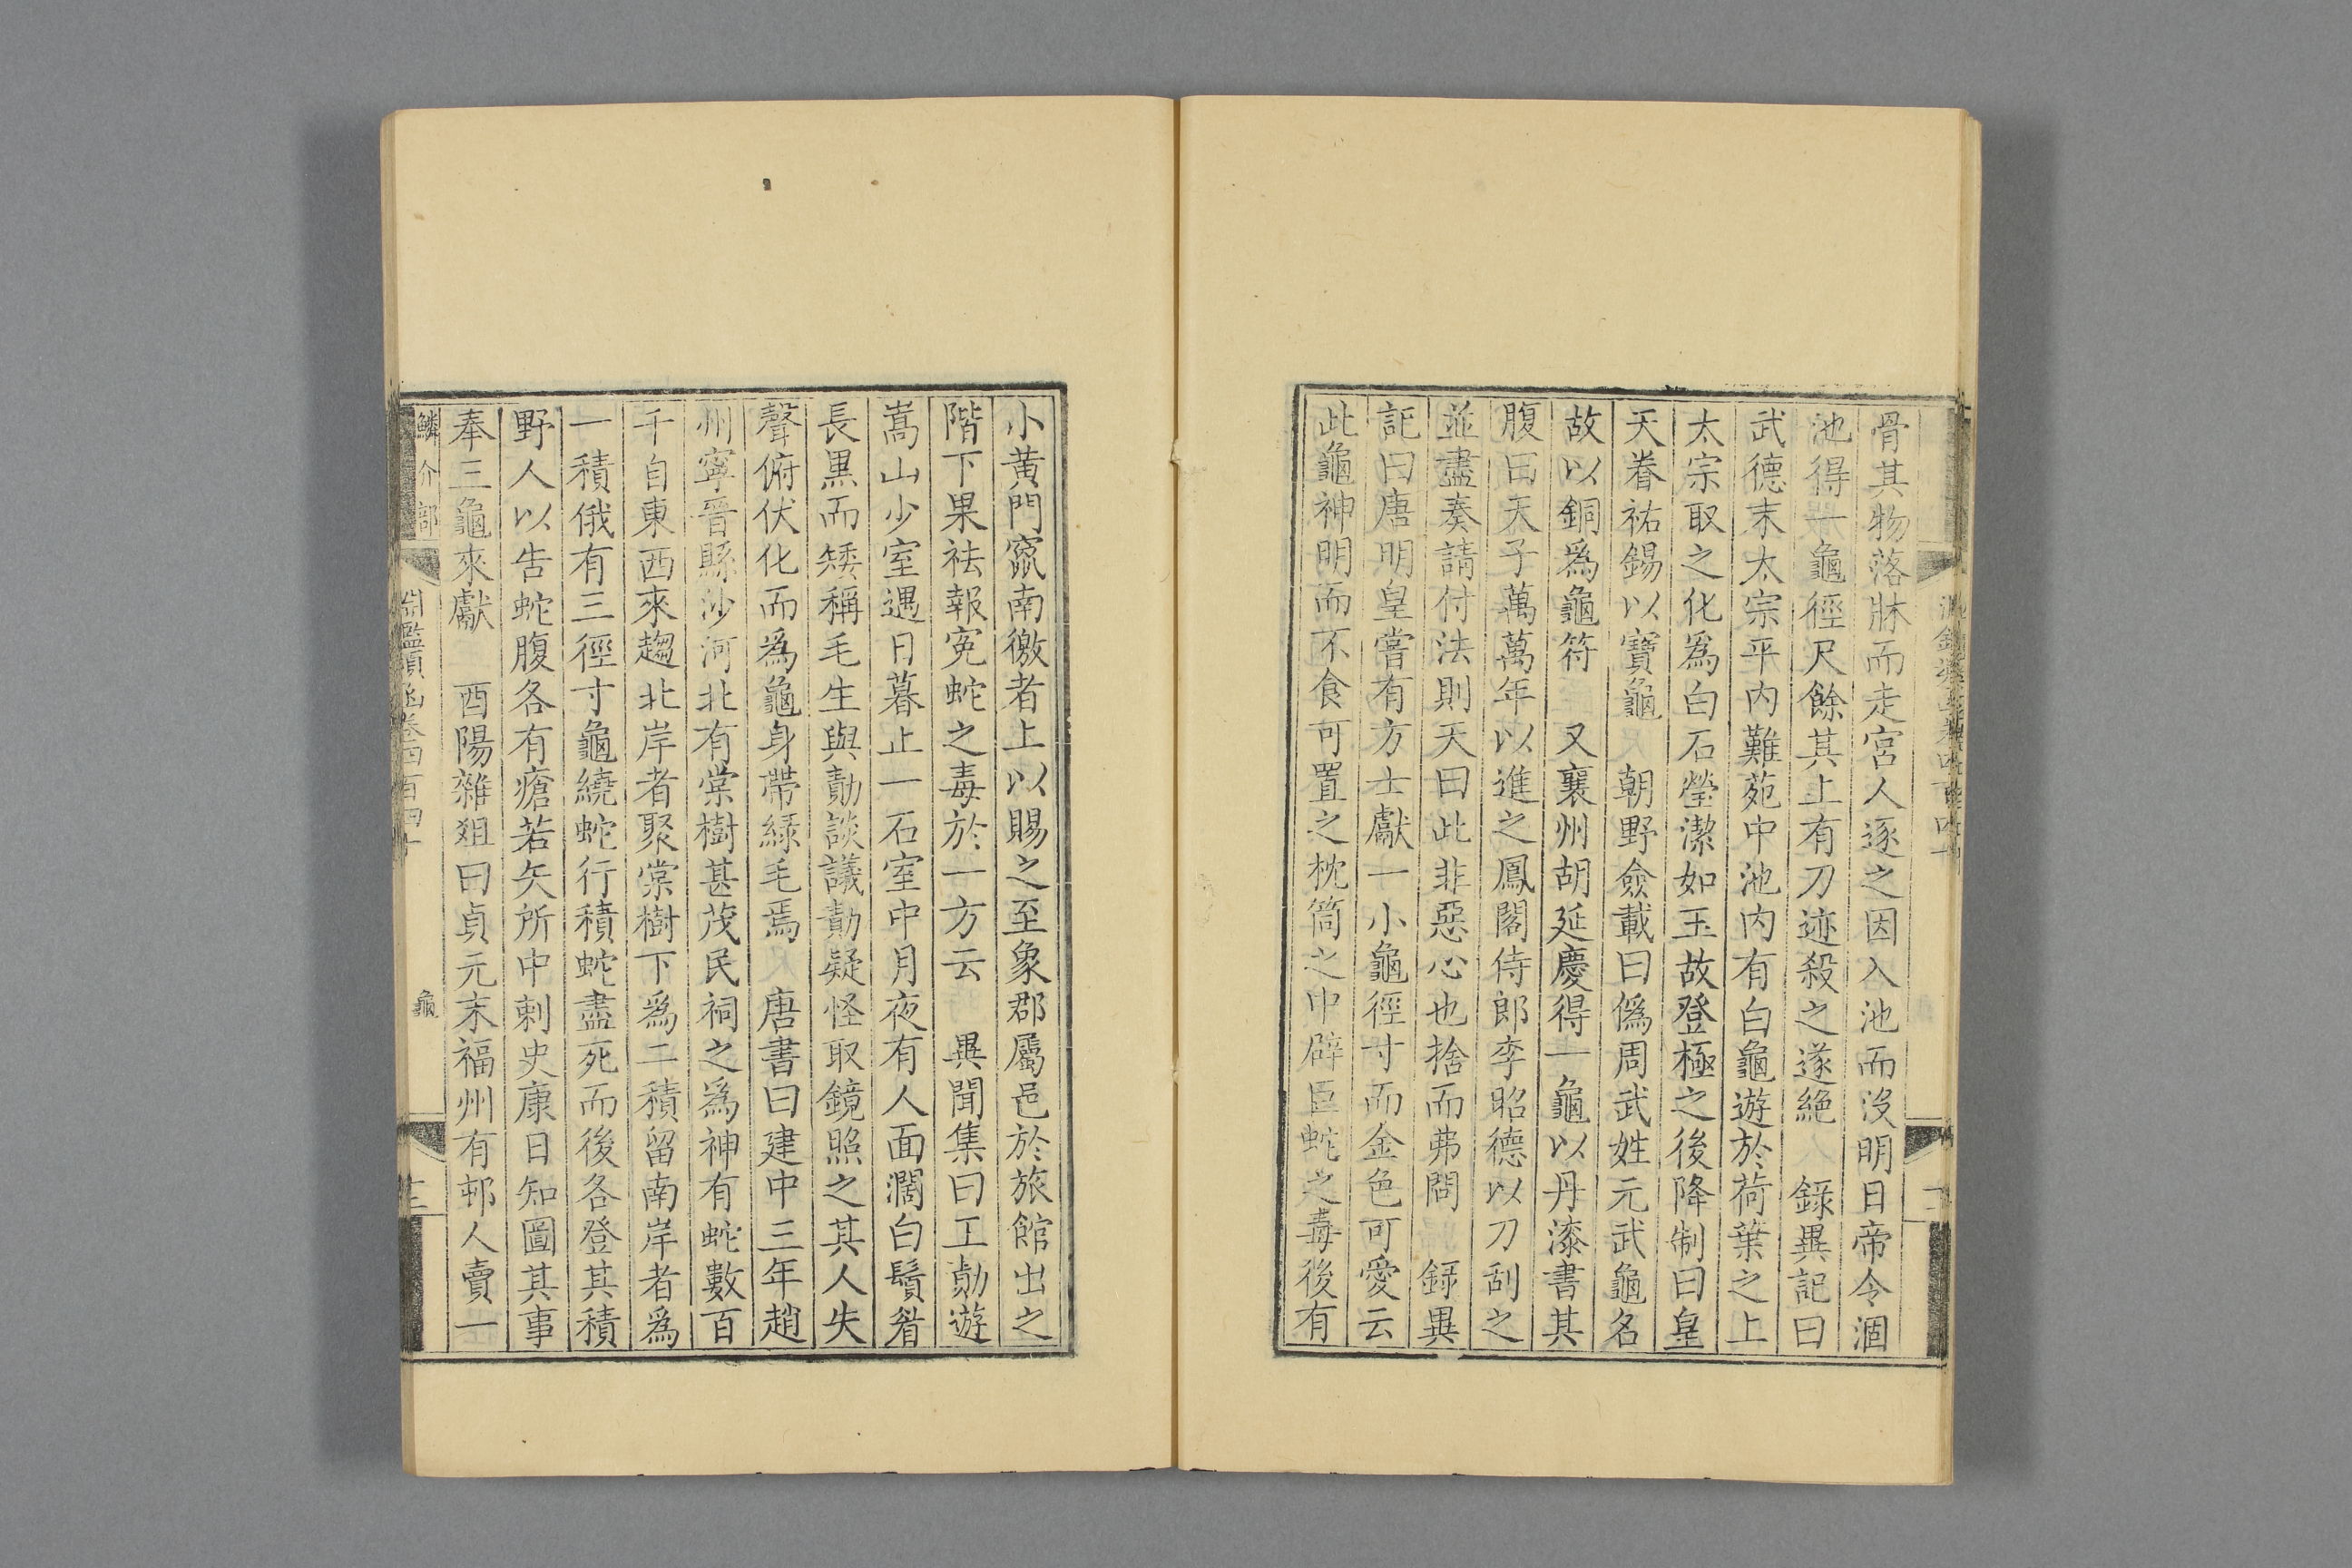 骨其物落牀而走宮人逐之因入池而沒明日帝令涸
池得一龜徑尺餘其上有刀迹殺之遂絕　錄異記曰
武德末太宗平內難苑中池內有白龜遊於荷葉之上
太宗取之化爲白石瑩潔如玉故登極之後降制曰皇
天眷祐錫以寶龜　朝野僉載曰僞周武姓元武龜名
故以銅爲龜符　又襄州胡延慶得一龜以丹漆書其
腹曰天子萬萬年以進之鳳閣侍郎李昭德以刀刮之
並盡奏請付法則天曰此非惡心也捨而弗問　録異
記曰唐明皇嘗有方士獻一小龜徑寸而金色可愛云
此龜神明而不食可置之枕笥之中辟巨蛇之毒後有
小黃門竄南徼者上以賜之至象郡屬邑於旅館出之
階下果祛報寃蛇之毒於一方云　異聞集曰工勛遊
嵩山少室遇日暮止一石室中月夜有人面濶白鬚眉
長黒而矮稱毛生與勛談議勛疑怪取鏡照之其人失
聲俯伏化而爲龜身帶緑毛焉　唐書曰建中三年趙
州寧晉縣沙河北有棠樹甚茂民祠之爲神有蛇數百
千自東西來趨北岸者聚棠樹下爲二積留南岸者爲
一積俄有三徑寸龜繞蛇行積蛇盡死而後各登其積
野人以告蛇腹各有瘡若矢所中刺史康日知圖其事
奉三龜來獻　酉陽雜俎曰貞元末福州有邨人賣一
鱗介部
卷四百四十
龜